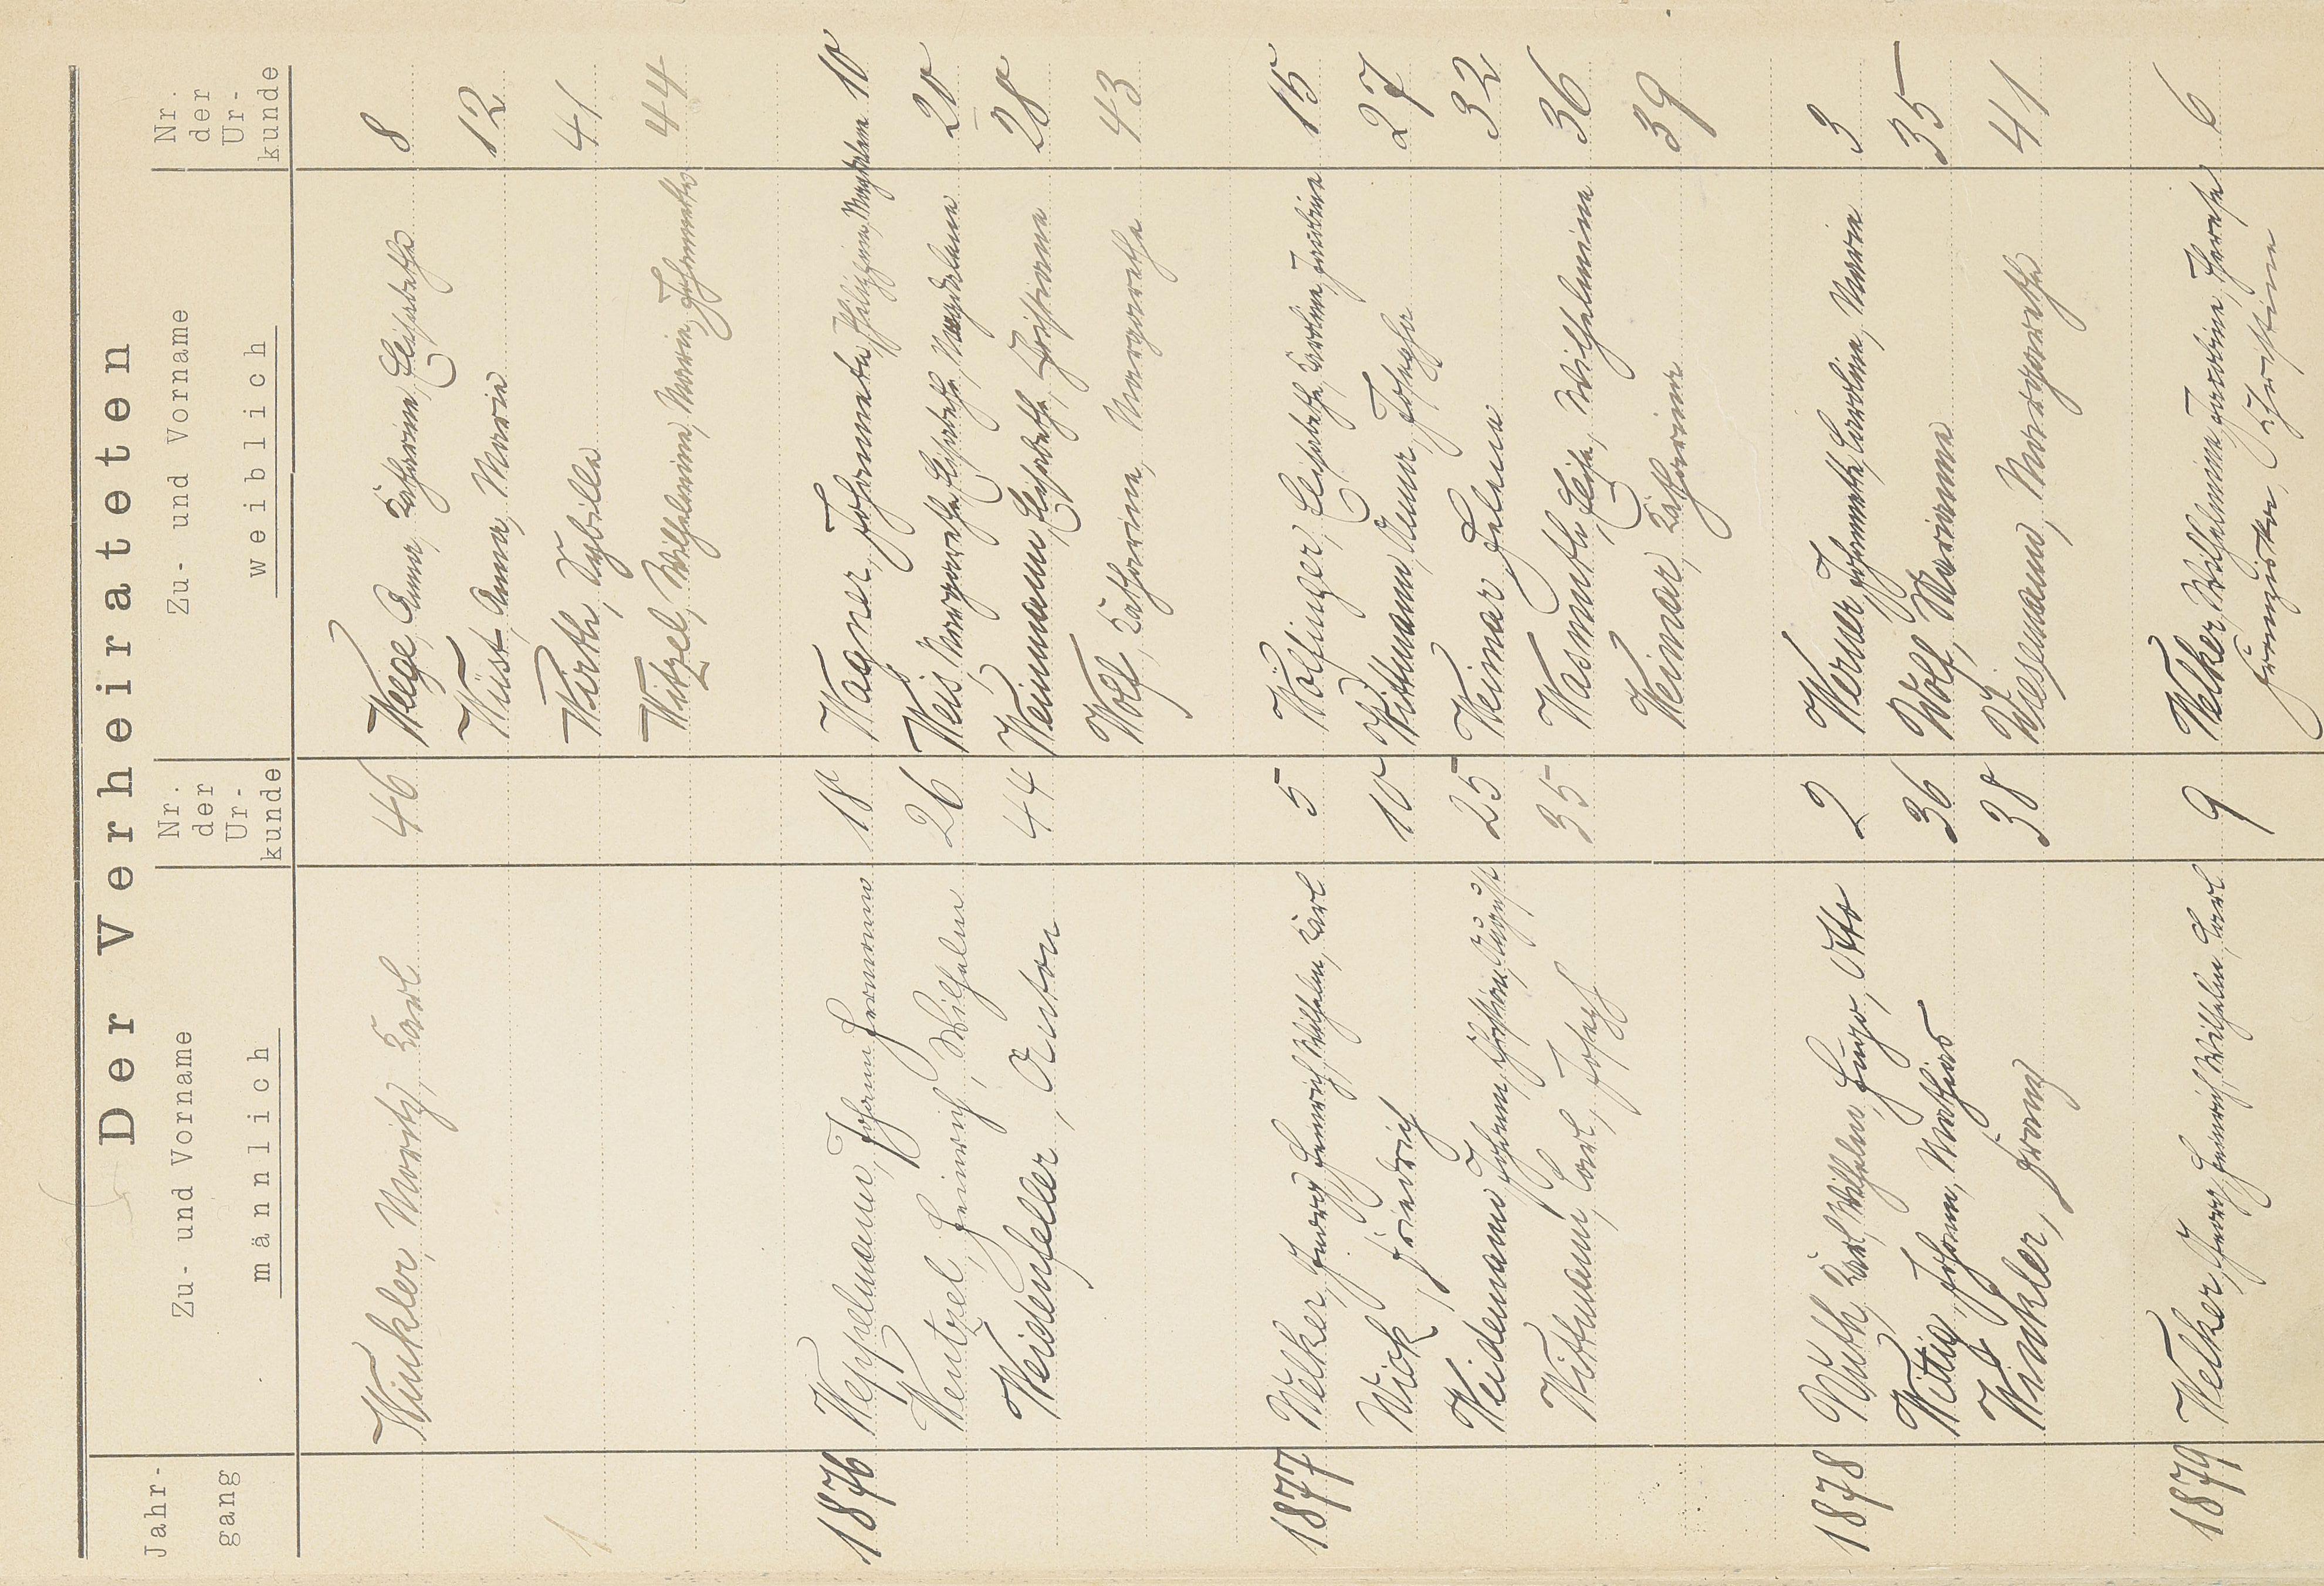 Der Verheirateten
Jahr-
gang
Zu- und Vorname
männlich
Nr.
der
Ur-
kunde
Zu- und Vorname
weiblich
Nr.
der
Ur-
kunde
Winkler, Moritz, Karl 46 Wege, Anna, Katharina, Elisabetha 8
Wüst, Anna, Maria 12
Wirth, Sybilla 41
Witzel, Wilhelmine, Maria, Johannetta 44
1876 Weppelmann, Johann Hermann 18 Wagner, Johannette, Philippine, Magdalena 10
Wentzel, Heinrich, Wilhelm 26 Weis, Margaretha, Elisabetha, Magdalena 20
Weidenfeller, Anton 44 Weinmann, Elisabetha, Christiana 28
Wolf, Katharina, Margaretha 43
1877 Welker, Georg, Heinrich, Wilhelm, Karl 5 Wölfinger, Elisabetha, Karolina, Jakobine 15
Wick, Friedrich 10 Wittmann, Anna, Josepha 27
Weidemann, Johann, Christian, August 25 Weimar, Helene 32
Wittmann, Carl, Joseph 35 Wasmuth, Elisa, Wilhelmine 36
Weimar, Katharina 39
1878 Wuth, Karl, Wilhelm, Hugo, Otto 2 Werner, Johannette, Karolina, Maria 3
Wittig, Johann, Mathias 36 Wolf, Marianna 35
Winkler, Franz 38 Wiesemann, Margaretha 41
1879 Welker, Georg, Heinrich, Wilhelm, Carl 9 Welker, Wilhelmina, Jakobine, Therese 6
Franziska, Christine